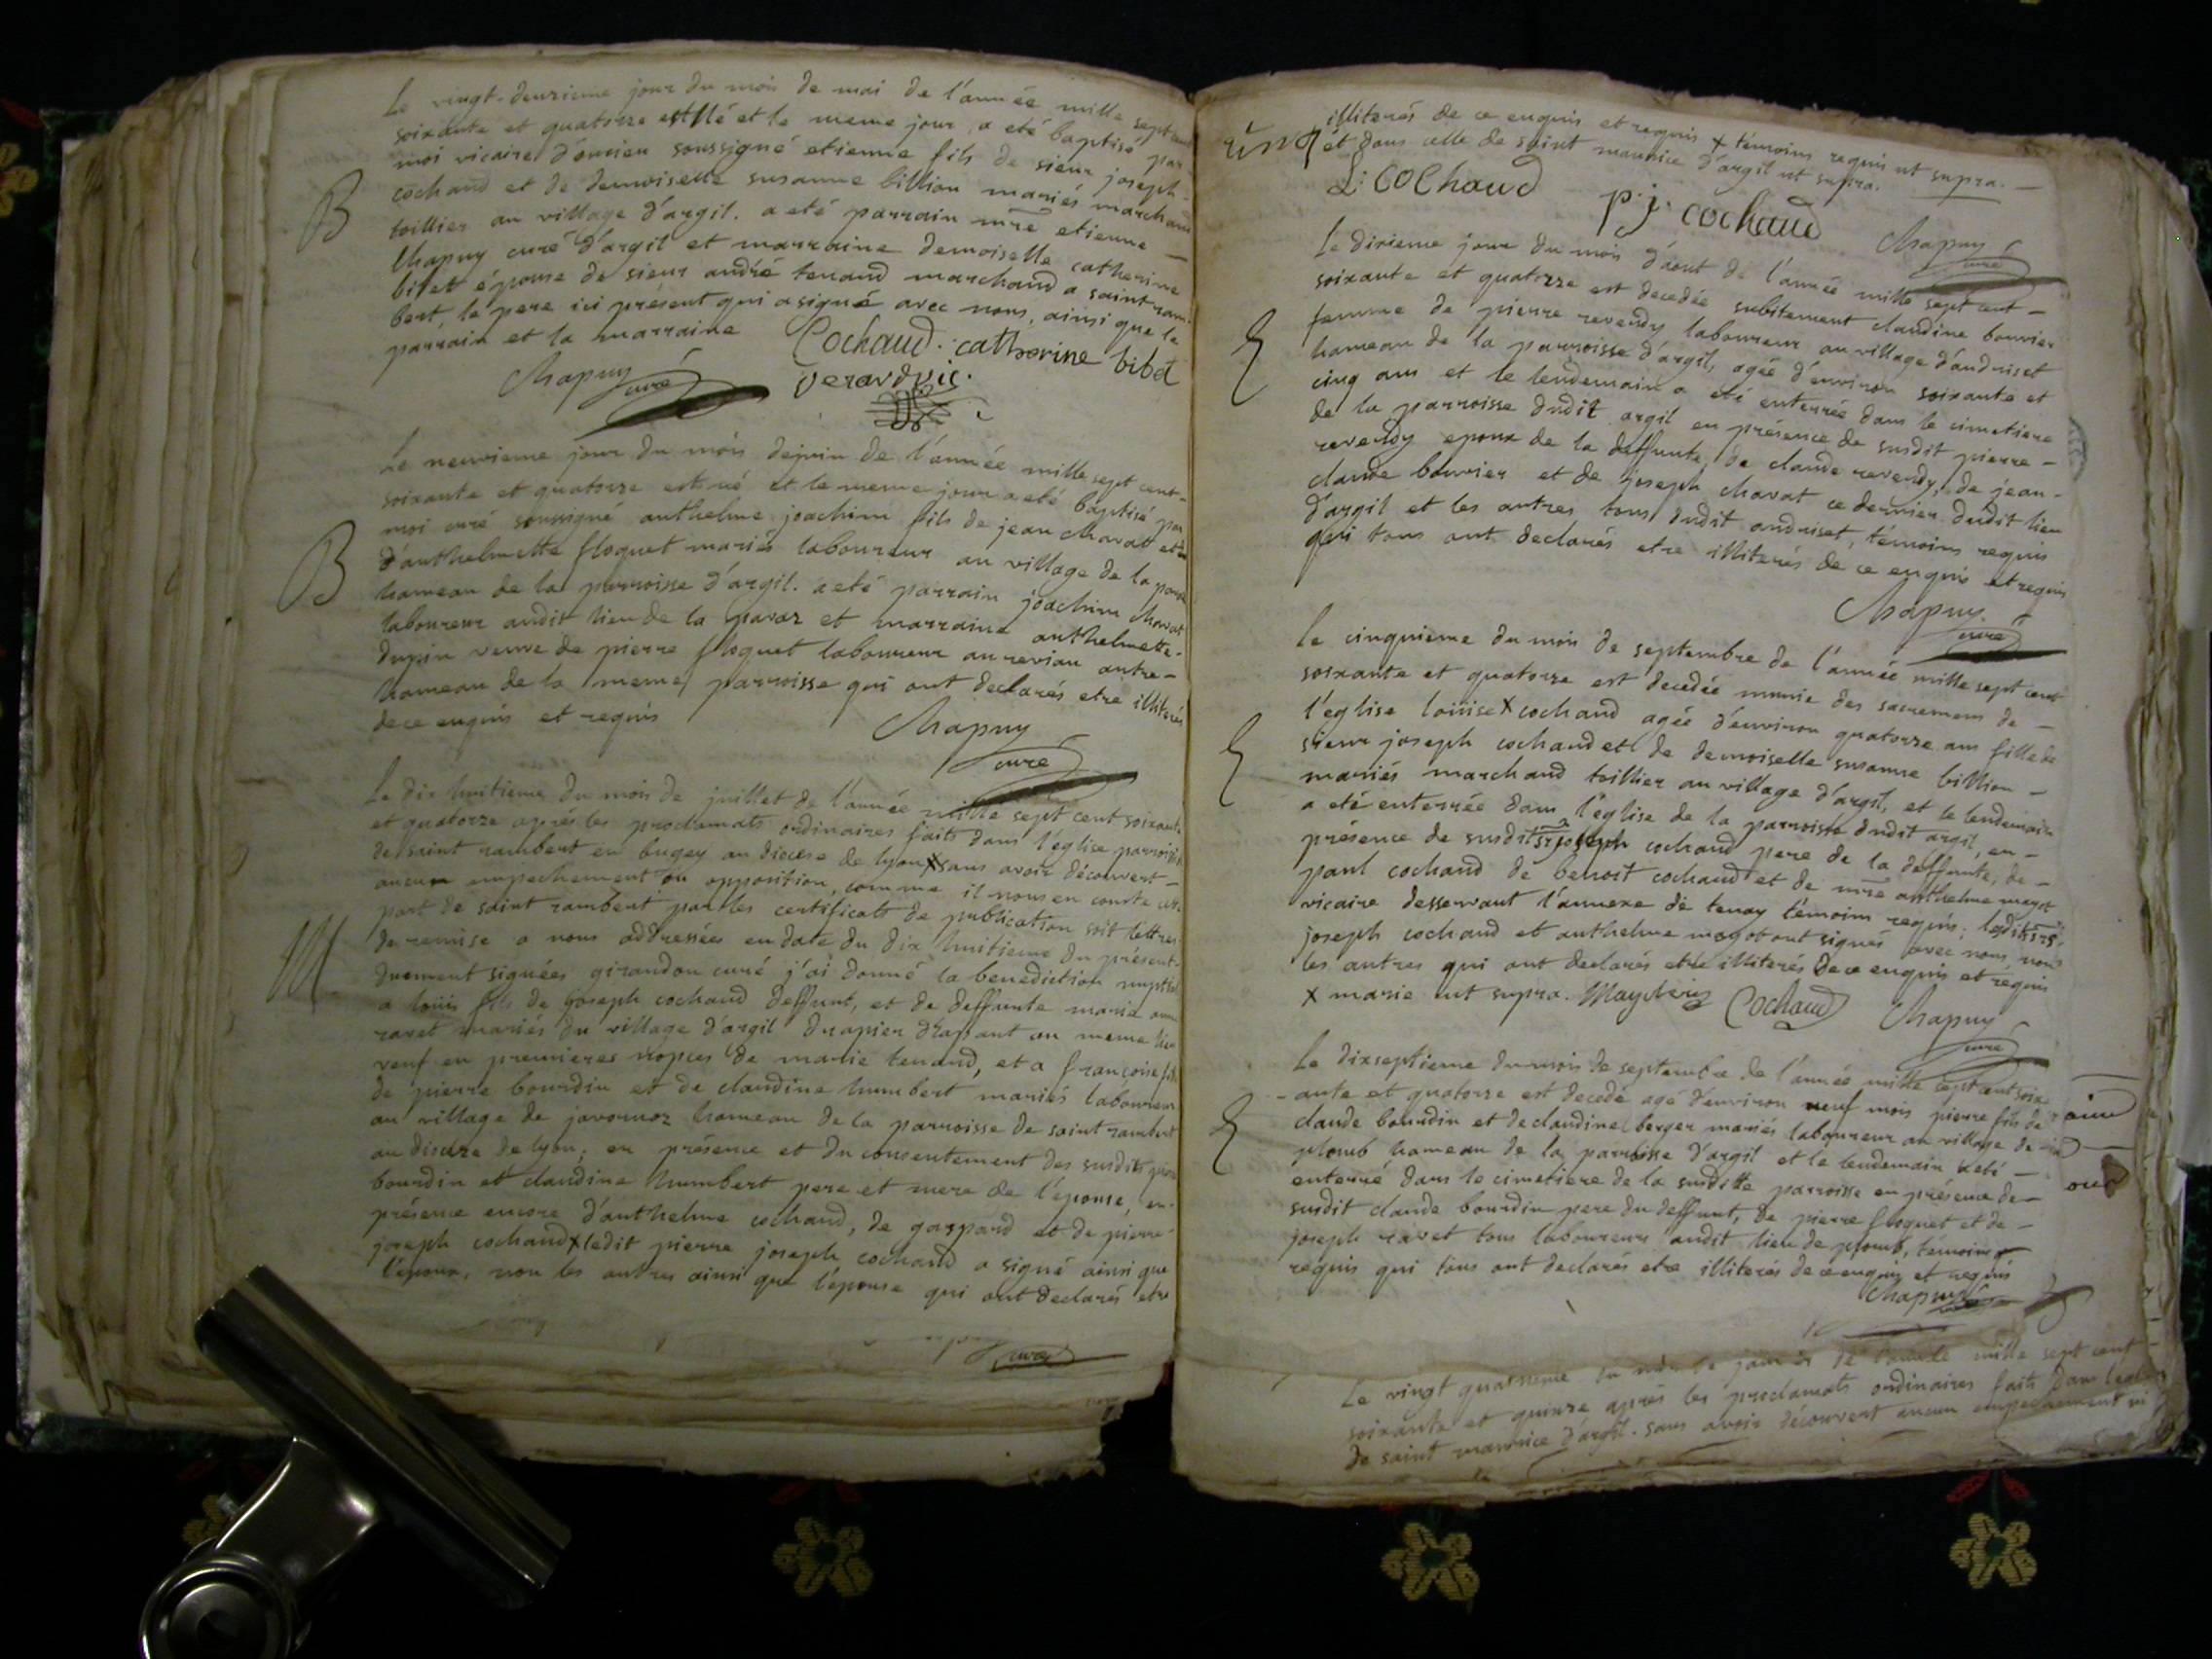 Le vingt-deuxieme jour du mois de mai de l'année mille sept cent
soixante et quatorze est né et le meme jour a eté baptisé par
moi vicaire d'oncieu soussigné etienne fils de sieur joseph-
B
cochaud et de demoiselle susanne billion mariés marchand
toillier au village d'argil. a eté parrain mre etienne —
Chapuy curé d'argil et marraine demoiselle catherine
bibet épouse de sieur andré tenand marchand a saint ram-
bert, le pere ici présent qui a signé avec nous, ainsi que le
parrain et la marraine Cochaud. catherine bibet
Chapuy curé
Le neuvieme jour du mois de juin de l'année mille sept cent-
soixante et quatorze est né et le meme jour a eté baptisé par
moi curé soussigné anthelme joachim fils de jean chavat et
B
d'anthelmette floquet mariés laboureur au village de la
hameau de la parroisse d'argil. a eté parrain joachim chavat
laboureur audit lieu de la et marraine anthelmette-
dupin veuve de pierre floquet laboureur au revian autre-
hameau de la meme parroisse qui ont declarés etre illiterés
de ce enquis et requis Chapuy
curé
Le dix huitieme du mois de juillet de l'année mille sept cent soixante
et quatorze après les proclamats ordinaires faits dans l'église parroissi
de saint rambert en bugey au diocese de lyon X sans avoir découvert —
aucun empechement ou opposition, comme il nous en conste
part de saint rambert par les certificats de publication soit lettres
de remise a nous addressées en date du dix huitieme du présent-
M
duement signées girandon curé j'ai donné la benediction nuptial
a louis fils de joseph cochaud deffunt, et de deffunte marie anne
ravet mariés du village d'argil drapier drapant au meme lieu
veuf en premieres nopces de marie tenand, et a françoise fille
de pierre bourdin et de claudine humbert mariés laboureur
au village de javornoz hameau de la parroisse de saint rambert
au diocese de lyon; en présence et du consentement des susdits pierre
bourdin et claudine humbert pere et mere de l'épouse, en-
présence encore d'anthelme cochaud, de gaspard et de pierre-
joseph cochaud X ledit pierre joseph cochaud a signé ainsi que
l'époux, non les autres ainsi que l'épouse qui ont declarés etre
curé
illiterés de ce enquis et requis X témoins requis ut supra. —
et dans celle de saint maurice d'argil ut supra.
L: COChaud
p. j. cochaud
Chapuy
curé
Le dixieme jour du mois d'aout de l'année mille sept cent —
soixante et quatorze est decedée subitement claudine bouvier
femme de pierre reverdy laboureur au village d'andriset
hameau de la parroisse d'argil, agée d'environ soixante et
cinq ans et le lendemain a eté enterrée dans le cimetiere
de la parroisse dudit argil en présence de susdit pierre —
reverdy epoux de la deffunte, de claude reverdy, de jean-
claude bouvier et de joseph chavat ce dernier dudit lieu
d'argil et les autres tous dudit andriset, témoins requis
qui tous ont declarés etre illiterés de ce enquis et requis
Chapuy
curé
Le cinquieme du mois de septembre de l'année mille sept cent
soixante et quatorze est decedée munie des sacremens de —
l'eglise louise X cochaud agée d'environ quatorze ans fille de
sieur joseph cochaud et de demoiselle susanne billion —
mariés marchand toillier au village d'argil, et le lendemain
a eté enterrée dans l'église de la parroisse dudit argil, en —
présence de susdit sr joseph cochaud pere de la deffunte, de —
paul cochaud de benoit cochaud et de mre anthelme mayot
vicaire desservant l'annexe de tenay témoins requis; ledit sr
joseph cochaud et anthelme mayot ont signés avec nous non
les autres qui ont declarés etre illiterés de ce enquis et requis
X marie ut supra. Cochaud Chapuy
curé
Le dixseptieme du mois de septembre de l'année mille sept cent soix
-ante et quatorze est decedé agé d'environ neuf mois pierre fils de
claude bourdin et de claudine berger mariés laboureur au village de
plomb hameau de la parroisse d'argil et le lendemain a eté —
enterré dans le cimetiere de la susditte parroisse en présence de —
susdit claude bourdin pere du deffunt, de pierre floquet et de —
joseph ravet tous laboureurs audit lieu de plomb, témoins
requis qui tous ont declarés etre illiterés de ce enquis et requis
Chapuy curé
Le vingt quatrieme du mois de janvier de l'année mille sept cent
soixante et quinze après les proclamats ordinaires faits dans l'eglise
de saint maurice d'argil. sans avoir découvert aucun empechement ni